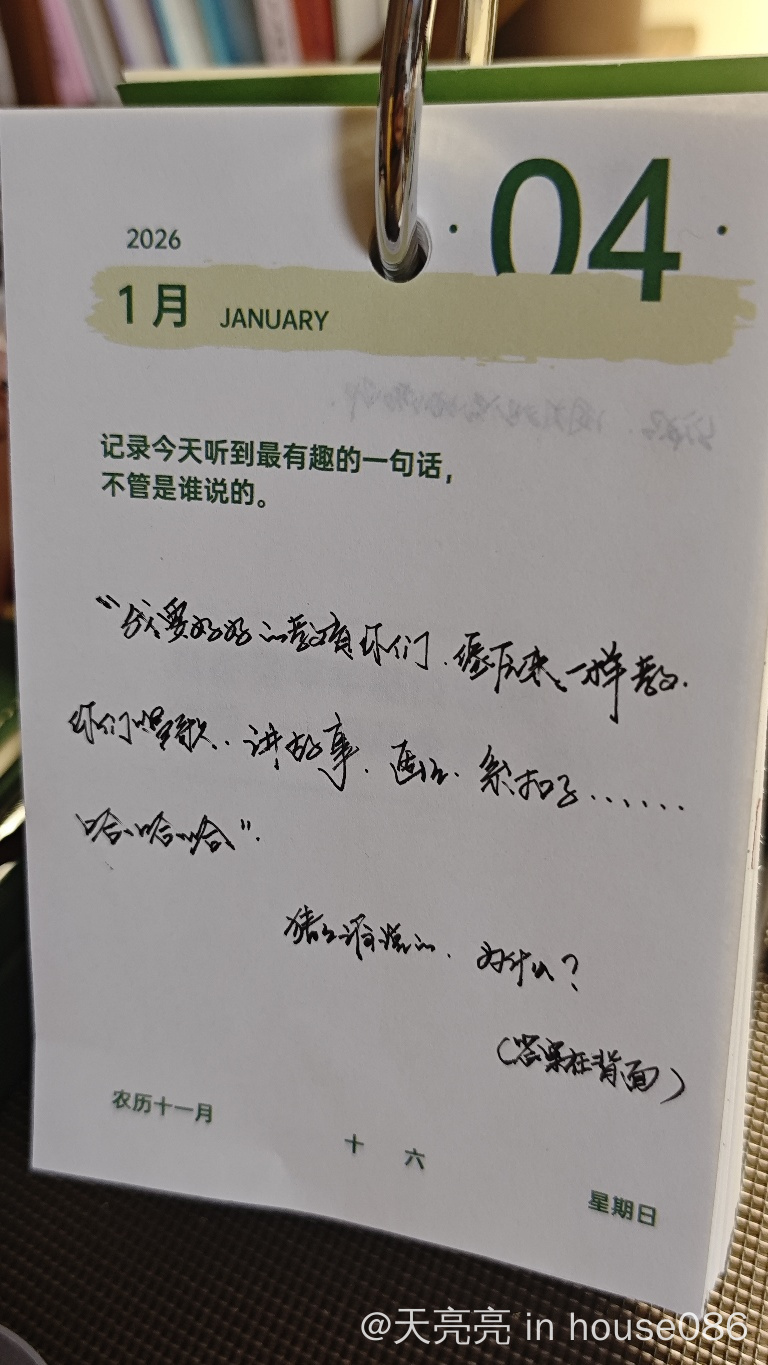 2026
04
1月 JANUARY
记录今天听到最有趣的一句话，
不管是谁说的。
“我要好好的教育你们，一样教
你们唱歌、讲故事、画画、系扣子……
哈哈哈”。
猜是谁说的、为什么？
（答案在背面）
农历十一月
十六
星期日
@天亮亮 in house086